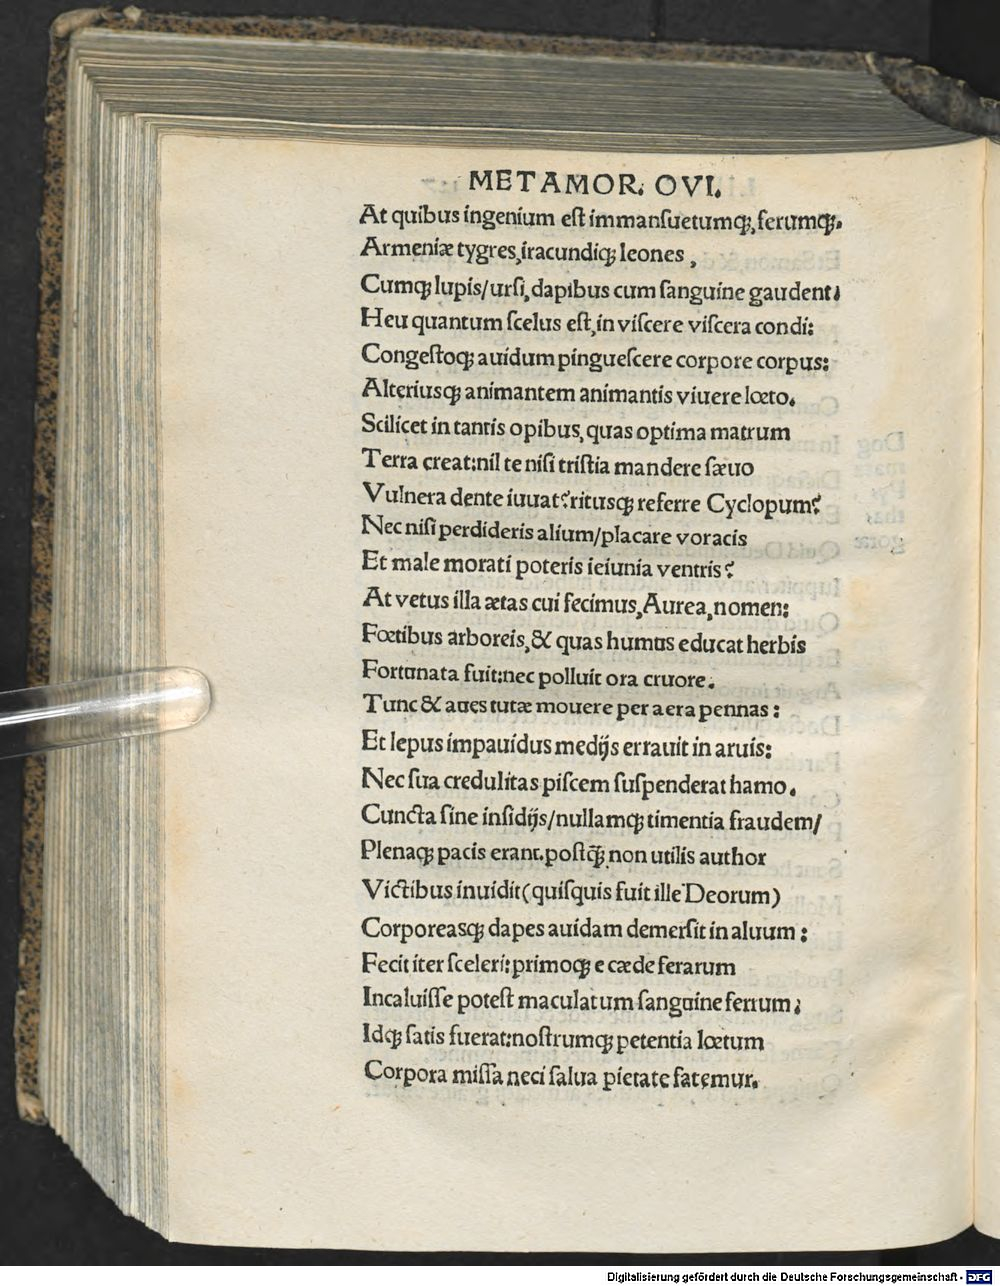 METAMOR. OVI.
At quibus ingenium est immansuetumq;, ferumq;.
Armeniæ tygres, iracundiq; leones,
Cumq; lupis/ursi, dapibus cum sanguine gaudent.
Heu quantum scelus est, in viscere viscera condi:
Congestoq; auidum pinguescere corpore corpus:
Alteriusq; animantem animantis viuere lœto.
Scilicet in tantis opibus, quas optima matrum
Terra creat: nil te nisi tristia mandere sæuo
Vulnera dente iuuat? ritusq; referre Cyclopum?
Nec nisi perdideris alium/placare voracis
Et male morati poteris ieiunia ventris?
At vetus illa ætas cui fecimus, Aurea, nomen:
Fœtibus arboreis, & quas humus educat herbis
Fortunata fuit: nec polluit ora cruore.
Tunc & aues tutæ mouere per aera pennas:
Et lepus impauidus medijs errauit in aruis:
Nec sua credulitas piscem suspenderat hamo.
Cuncta sine insidijs/nullamq; timentia fraudem/
Plenaq; pacis erant. postq̃ non utilis author
Victibus inuidit (quisquis fuit ille Deorum)
Corporeasq; dapes auidam demersit in aluum:
Fecit iter sceleri: primoq; e cæde ferarum
Incaluisse potest maculatum sanguine ferrum.
Idq; satis fuerat: nostrumq; petentia lœtum
Corpora missa neci salua pietate fatemur.
Digitalisierung gefördert durch die Deutsche Forschungsgemeinschaft - DFG